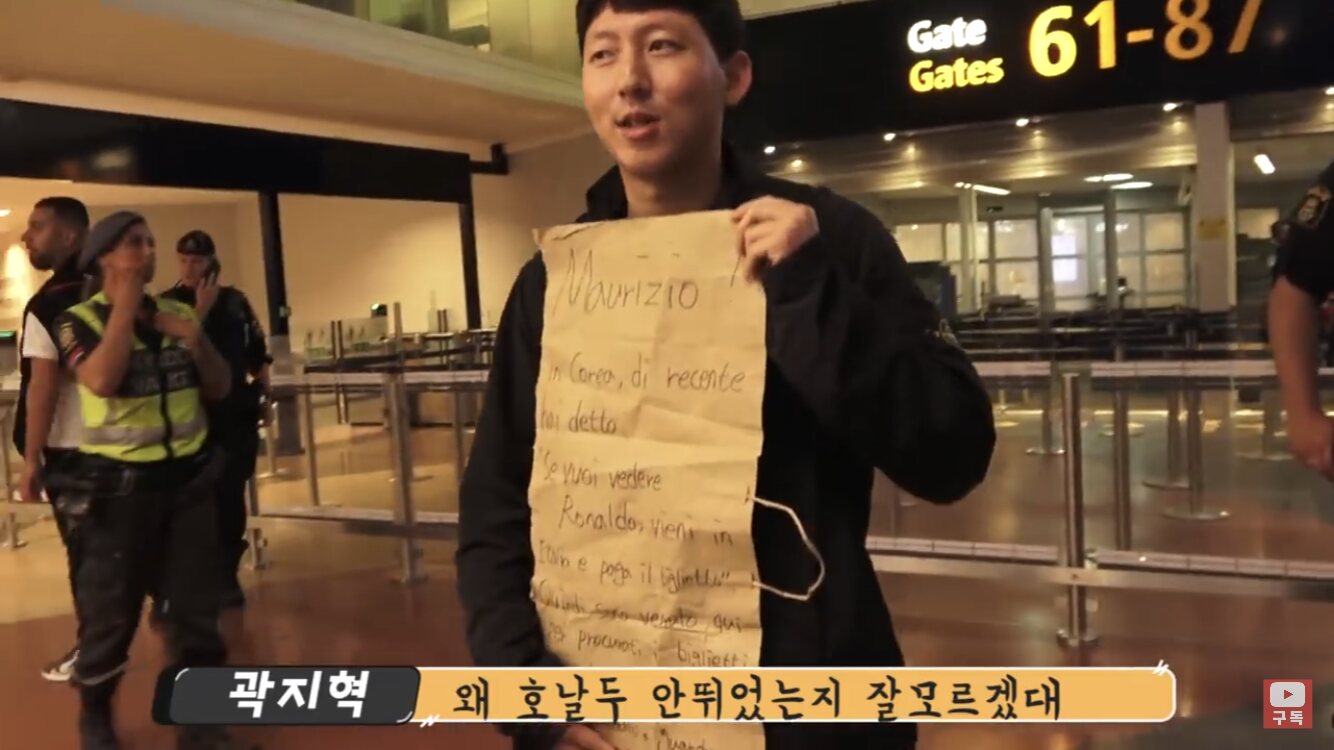 Gate
Gates
61-87
Maurizio
in Corea, di recente
hai detto
"Se vuoi vedere
Ronaldo, vieni in
Italia e paga il biglietto".
Quindi sono venuto qui
per procurarti i biglietti
곽지혁
왜 호날두 안뛰었는지 잘모르겠대
구독